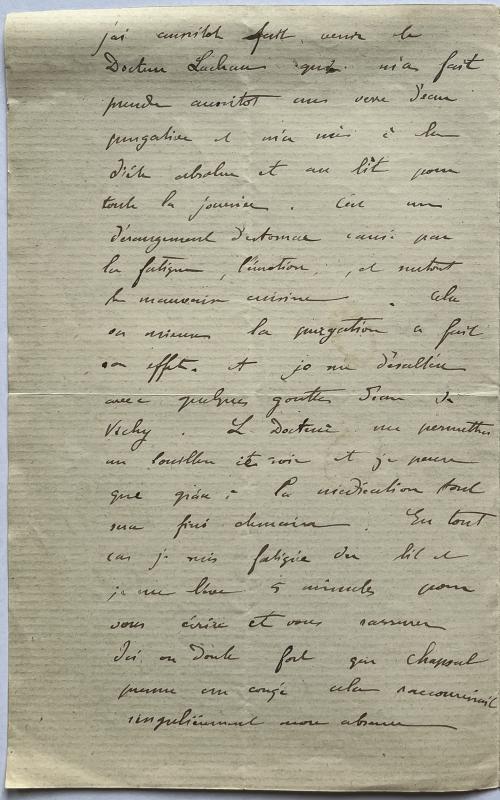 j'ai aussitôt fait venir le
Docteur qui m'a fait
prendre aussitot un verre d'eau
purgative et m'a mis à la
diète absolue et au lit pour
toute la journée. C'est un
dérangement d'estomac causé par
la fatigue, l'émotion, et surtout
la mauvaise cuisine. Cela
va mieux la purgation a fait
son effet. et je me désaltère
avec quelques gouttes d'eau de
Vichy. Le Docteur me permettra
un bouillon ce soir et je pense
que grâce à la médication tout
sera fini demain. En tout
cas je suis fatigué du lit et
je me lève 5 minutes pour
vous écrire et vous rassurer
Ici on doute fort que Chapsal
prenne un congé cela raccourcirait
singulièrement mon absence